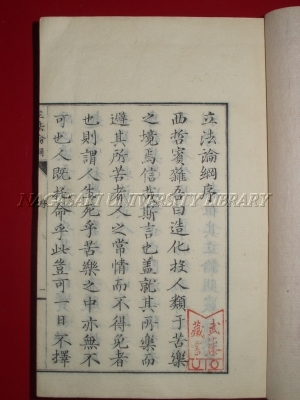 立法論綱序
西哲賓雜吾曰造化投人類于苦樂
之境焉信哉斯言也蓋就其所樂而
避其所苦者人之常情而不得免者
也則謂人生死乎苦樂之中亦無不
可也人既托命乎此豈可一日不擇
NAGASAKI UNIVERSITY LIBRARY